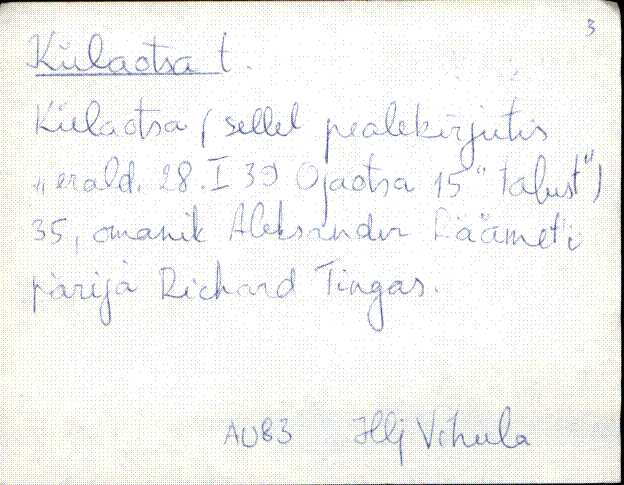 3
Külaotsa t.
Külaotsa (sellel pealekirjutis
„erald. 28.I 39 Ojaotsa 15“ talust“)
35, omanik Aleksander Räämet'i
pärija Richard Tingas.
AU83 Hlj Vihula